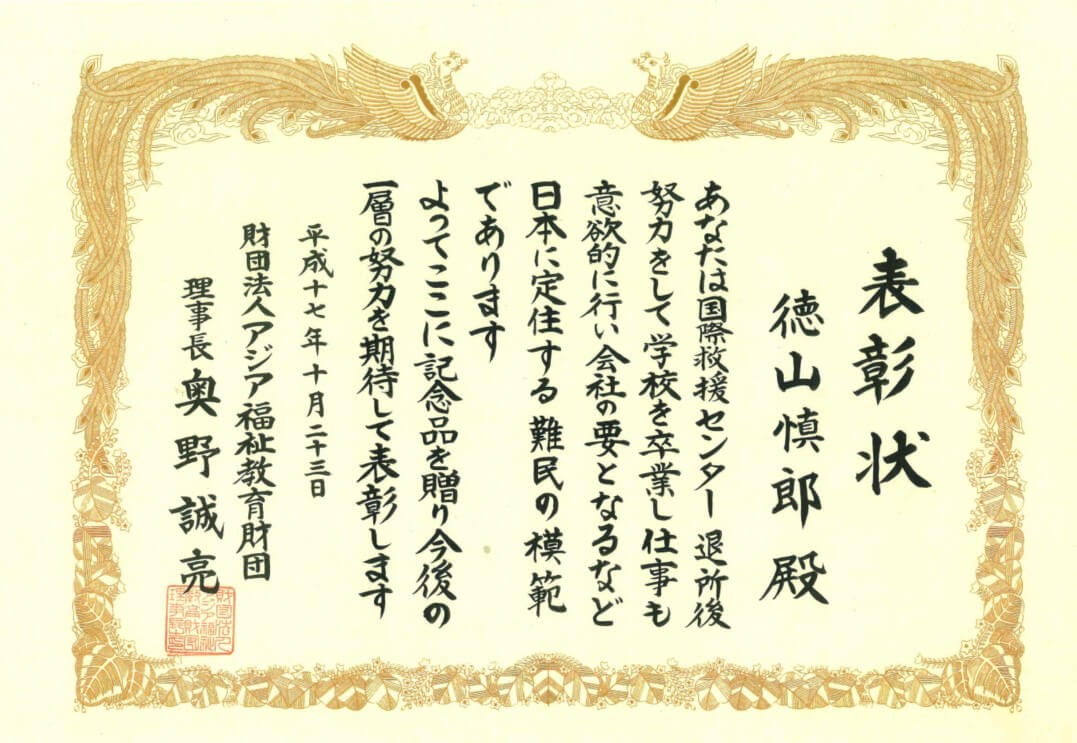 表彰状
徳山慎郎殿
あなたは国際救援センター退所後
努力をして学校を卒業し仕事も
意欲的に行い会社の要となるなど
日本に定住する難民の模範
であります
よってここに記念品を贈り今後の
一層の努力を期待して表彰します
平成十七年十月二十三日
財団法人アジア福祉教育財団
理事長奥野誠亮
財団法人
アジア福祉
教育財団
理事長之印